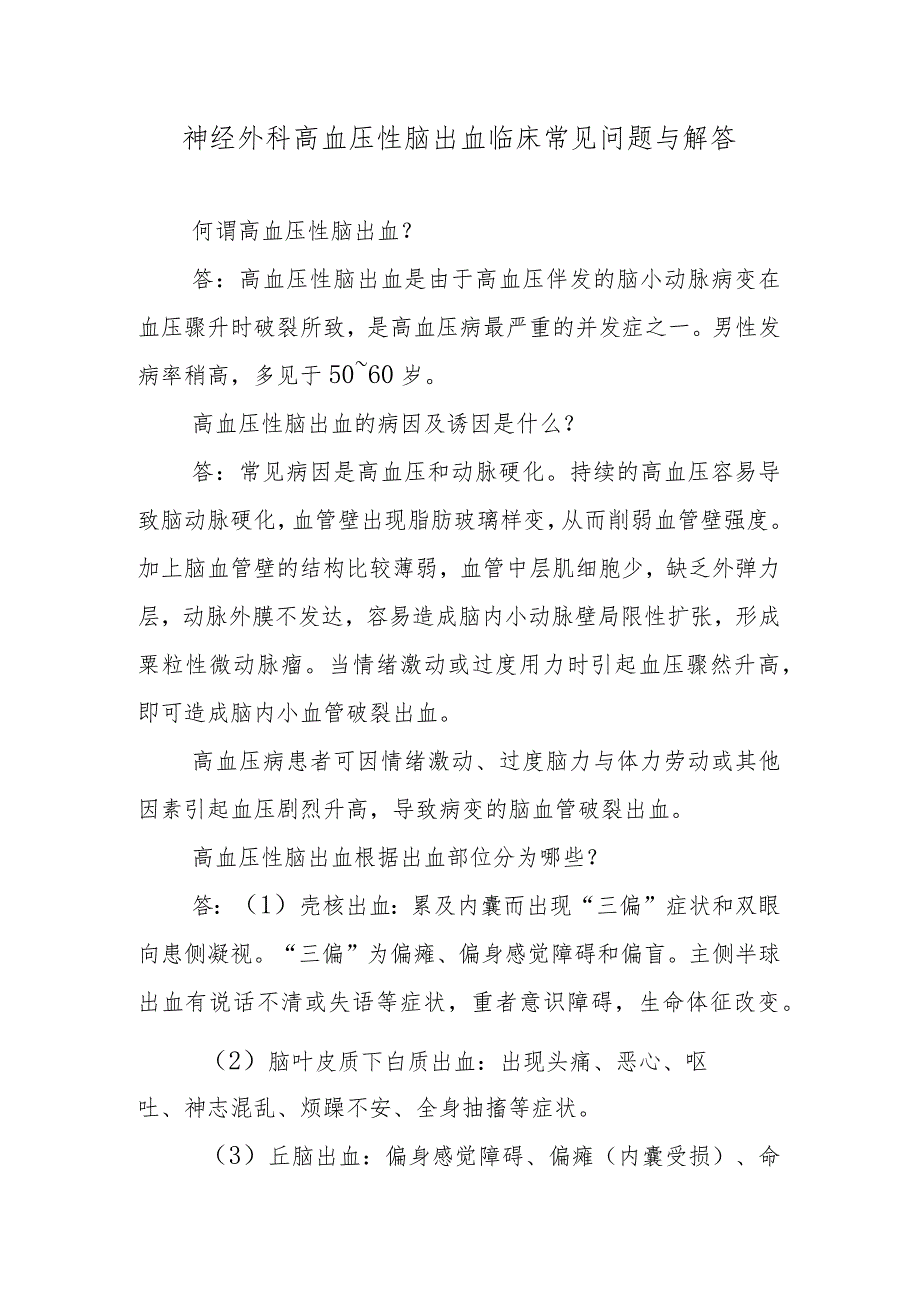 神经外科高血压性脑出血临床常见问题与解答
何谓高血压性脑出血？
答：高血压性脑出血是由于高血压伴发的脑小动脉病变在
血压骤升时破裂所致，是高血压病最严重的并发症之一。男性发
病率稍高，多见于 50~60 岁。
高血压性脑出血的病因及诱因是什么？
答：常见病因是高血压和动脉硬化。持续的高血压容易导
致脑动脉硬化，血管壁出现脂肪玻璃样变，从而削弱血管壁强度。
加上脑血管壁的结构比较薄弱，血管中层肌细胞少，缺乏外弹力
层，动脉外膜不发达，容易造成脑内小动脉壁局限性扩张，形成
粟粒性微动脉瘤。当情绪激动或过度用力时引起血压骤然升高，
即可造成脑内小血管破裂出血。
高血压病患者可因情绪激动、过度脑力与体力劳动或其他
因素引起血压剧烈升高，导致病变的脑血管破裂出血。
高血压性脑出血根据出血部位分为哪些？
答：（1）壳核出血：累及内囊而出现“三偏”症状和双眼
向患侧凝视。“三偏”为偏瘫、偏身感觉障碍和偏盲。主侧半球
出血有说话不清或失语等症状，重者意识障碍，生命体征改变。
（2）脑叶皮质下白质出血：出现头痛、恶心、呕
吐、神志混乱、烦躁不安、全身抽搐等症状。
（3）丘脑出血：偏身感觉障碍、偏瘫（内囊受损）、命